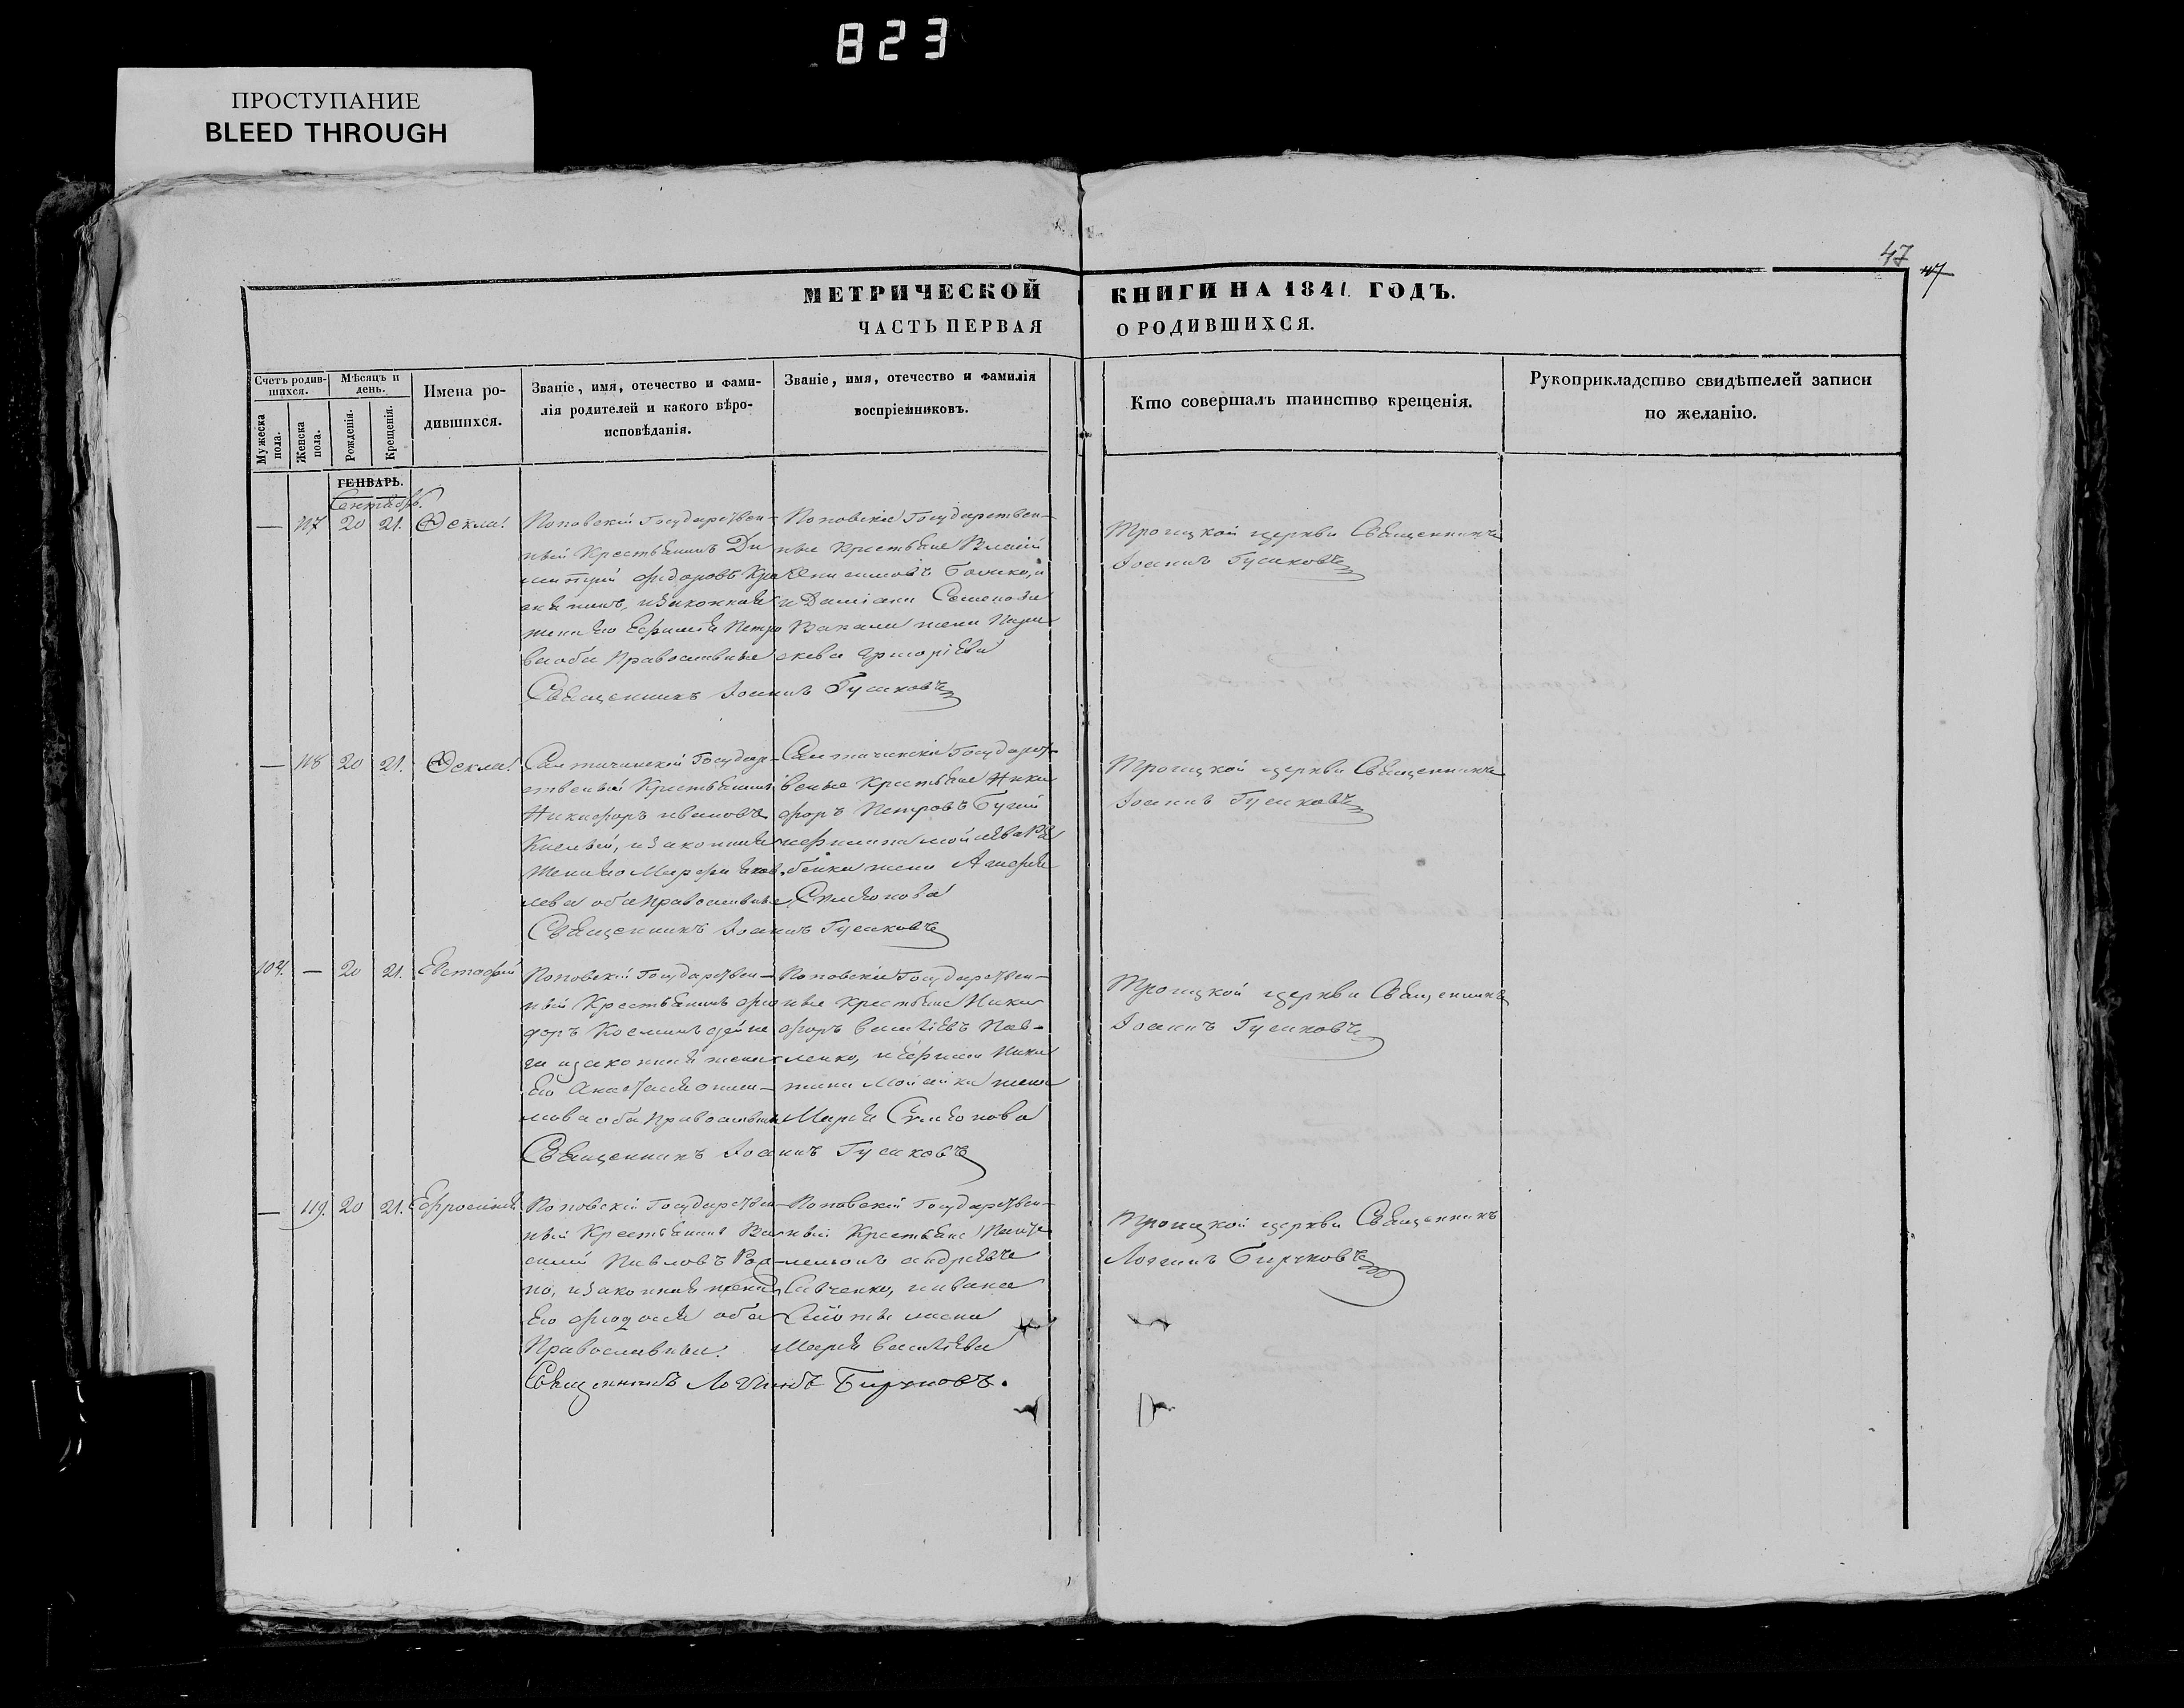 823
ПРОСТУПАНИЕ
BLEED THROUGH
47
47
МЕТРИЧЕСКОЙ КНИГИ НА 1841 ГОДЪ.
ЧАСТЬ ПЕРВАЯ О РОДИВШИХСЯ.
Счетъ родив-
шихся.
Мужеска
пола.
Женска
пола.
Мѣсяцъ и
день.
Рожденія.
Крещенія.
Имена ро-
дившихся.
Званіе, имя, отечество и фами-
лія родителей и какого вѣро-
исповѣданія.
Званіе, имя, отечество и фамилія
воспріемниковъ.
Кто совершалъ таинство крещенія.
Рукоприкладство свидѣтелей записи
по желанію.
ГЕНВАРЬ.
Сентябрь.
— 117 20 21. Ѳекла
Поповскій Государствен-
ный Крестьянинъ Ди
митрій Федоровъ
законная
жена его Евфимія Петро
ва оба Православные
Священникъ Іоаннъ Гусаковъ
Поповскіе Государствен-
ные крестьяне
и Даміана Семенова
жена Пара
скева Григоріева
Троицкой церкви Священникъ
Іоаннъ Гусаковъ
— 118 20 21. Ѳекла
Государ-
ственный Крестьянинъ
Никифоръ Ивановъ
законная
жена его
оба Православные
Священникъ Іоаннъ Гусаковъ
Государст-
венные Крестьяне Ники
форъ Петровъ
жена Агафія
Симеонова
Троицкой церкви Священникъ
Іоаннъ Гусаковъ
104. — 20 21. Евстафій
Поповскій Государствен-
ный Крестьянинъ Фео
доръ Косминъ
законная жена
его Анастасія
оба Православные
Священникъ Іоаннъ Гусаковъ
Поповскіе Государствен-
ные крестьяне Ники
форъ Василіевъ Пав-
ленко, и Ефима Ники
тина жена
Марія Симеонова
Троицкой церкви Священникъ
Іоаннъ Гусаковъ
— 119. 20 21. Ефросинія
Поповскій Государствен-
ный Крестьянинъ Ва
силій Павловъ
законная жена
его Феодосія оба
Православные.
Священникъ Логинъ Бируковъ.
Поповскій Государствен-
ный Крестьяне Панте
леимонъ Андреевъ
Савченко, и Ивана
жена
Марія Василіева
Троицкой церкви Священникъ
Логинъ Бируковъ